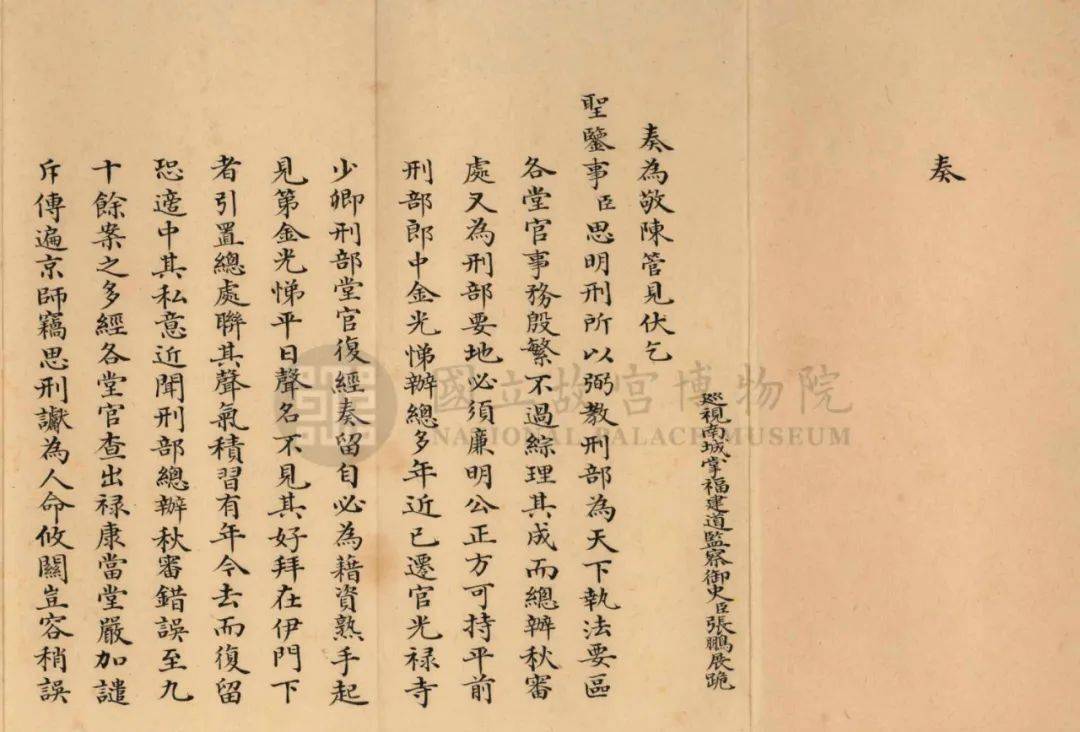 奏
巡視南城掌福建道監察御史臣張鵬展跪
奏為敬陳管見伏乞
聖鑒事臣思明刑所以弼教刑部為天下執法要區
各堂官事務殷繁不過綜理其成而總辦秋審
處又為刑部要地必須廉明公正方可持平前
刑部郎中金光悌辦總多年近已遷官光祿寺
少卿刑部堂官復經奏留自必為藉資熟手起
見第金光悌平日聲名不見其好拜在伊門下
者引置總處聯其聲氣積習有年今去而復留
恐適中其私意近聞刑部總辦秋審錯誤至九
十餘案之多經各堂官查出祿康當堂嚴加譴
斥傳遍京師竊思刑讞為人命攸關豈容稍誤
國立故宮博物院
NATIONAL PALACE MUSEUM